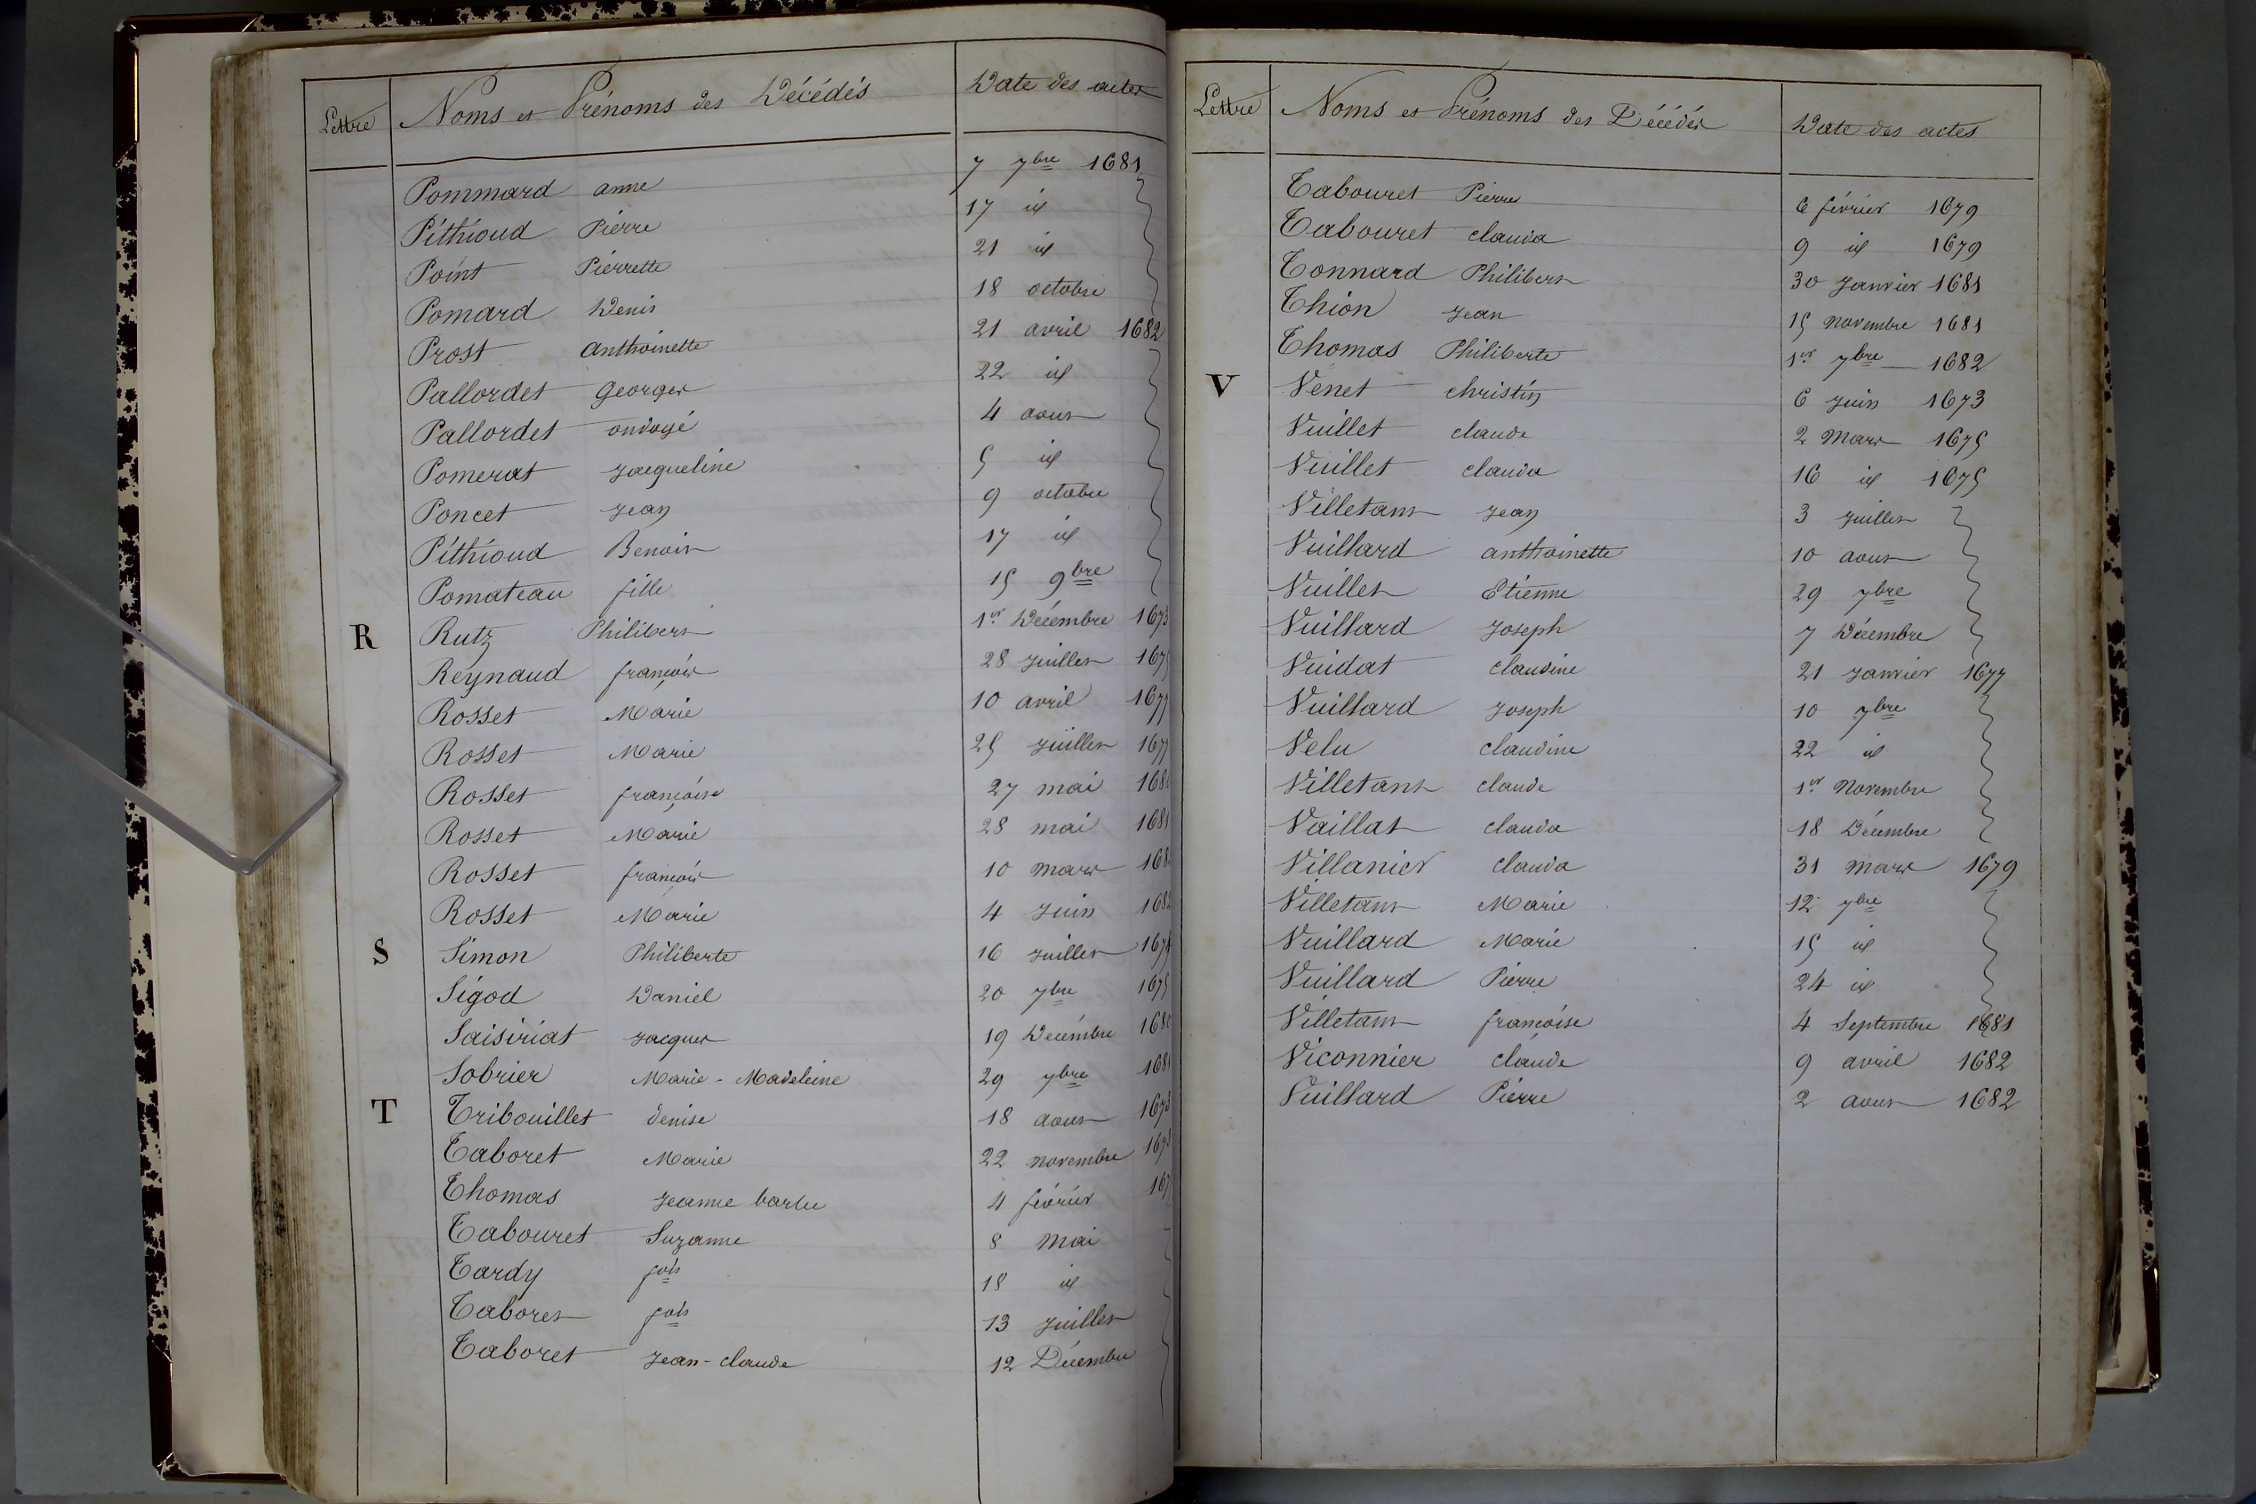 Lettre Noms et Prénoms des Décédés Date des actes
Pommard anne 7 7bre 1681
Pithioud Pierre 17 id
Point Pierrette 21 id
Pomard Denis 18 octobre
Prost Anthoinette 21 avril 1682
Pallordet Georges 22 id
Pallordet ondoyé 4 aout
Pomerat Jacqueline 5 id
Poncet Jean 9 octobre
Pithioud Benoit 17 id
Pomateau fille 15 9bre
R Rutz Philibert 1er Décembre 1673
Reynaud françois 28 Juillet
Rosset Marie 10 avril 1677
Rosset Marie 25 Juillet 1677
Rosset françoise 27 mai
Rosset Marie 28 mai 1681
Rosset françois 10 Mars
Rosset Marie 4 Juin 1682
S Simon Philiberte 16 Juillet
Sigod Daniel 20 7bre 1675
Saisiriat Jacques 19 Décembre
Sobrier Marie-Madeleine 29 7bre 1681
T Tribouillet denise 18 aout 1673
Taboret Marie 22 novembre
Thomas Jeanne barbe 4 février
Tabouret Suzanne 8 Mai
Tardy fois 18 id
Taboret fois 13 Juillet
Taboret Jean-claude 12 Décembre
Lettre Noms et Prénoms des Décédés Date des actes
Tabouret Pierre 6 février 1679
Tabouret clauda 9 id 1679
Tonnard Philibert 30 Janvier 1681
Thion Jean 15 Novembre 1681
Thomas Philiberte 1er 7bre 1682
V Venet christin 6 Juin 1673
Vuillet claude 2 Mars 1675
Vuillet clauda 16 id 1675
Villetant Jean 3 Juillet
Vuillard anthoinette 10 aout
Vuillet Etienne 29 7bre
Vuillard Joseph 7 Décembre
Vuidat claudine 21 Janvier 1677
Vuillard Joseph 10 7bre
Velu claudine 22 id
Villetant claude 1er Novembre
Vaillat clauda 18 Décembre
Villanier clauda 31 Mars 1679
Villetant Marie 12 7bre
Vuillard Marie 15 id
Vuillard Pierre 24 id
Villetant françoise 4 Septembre 1681
Viconnier claude 9 avril 1682
Vuillard Pierre 2 aout 1682